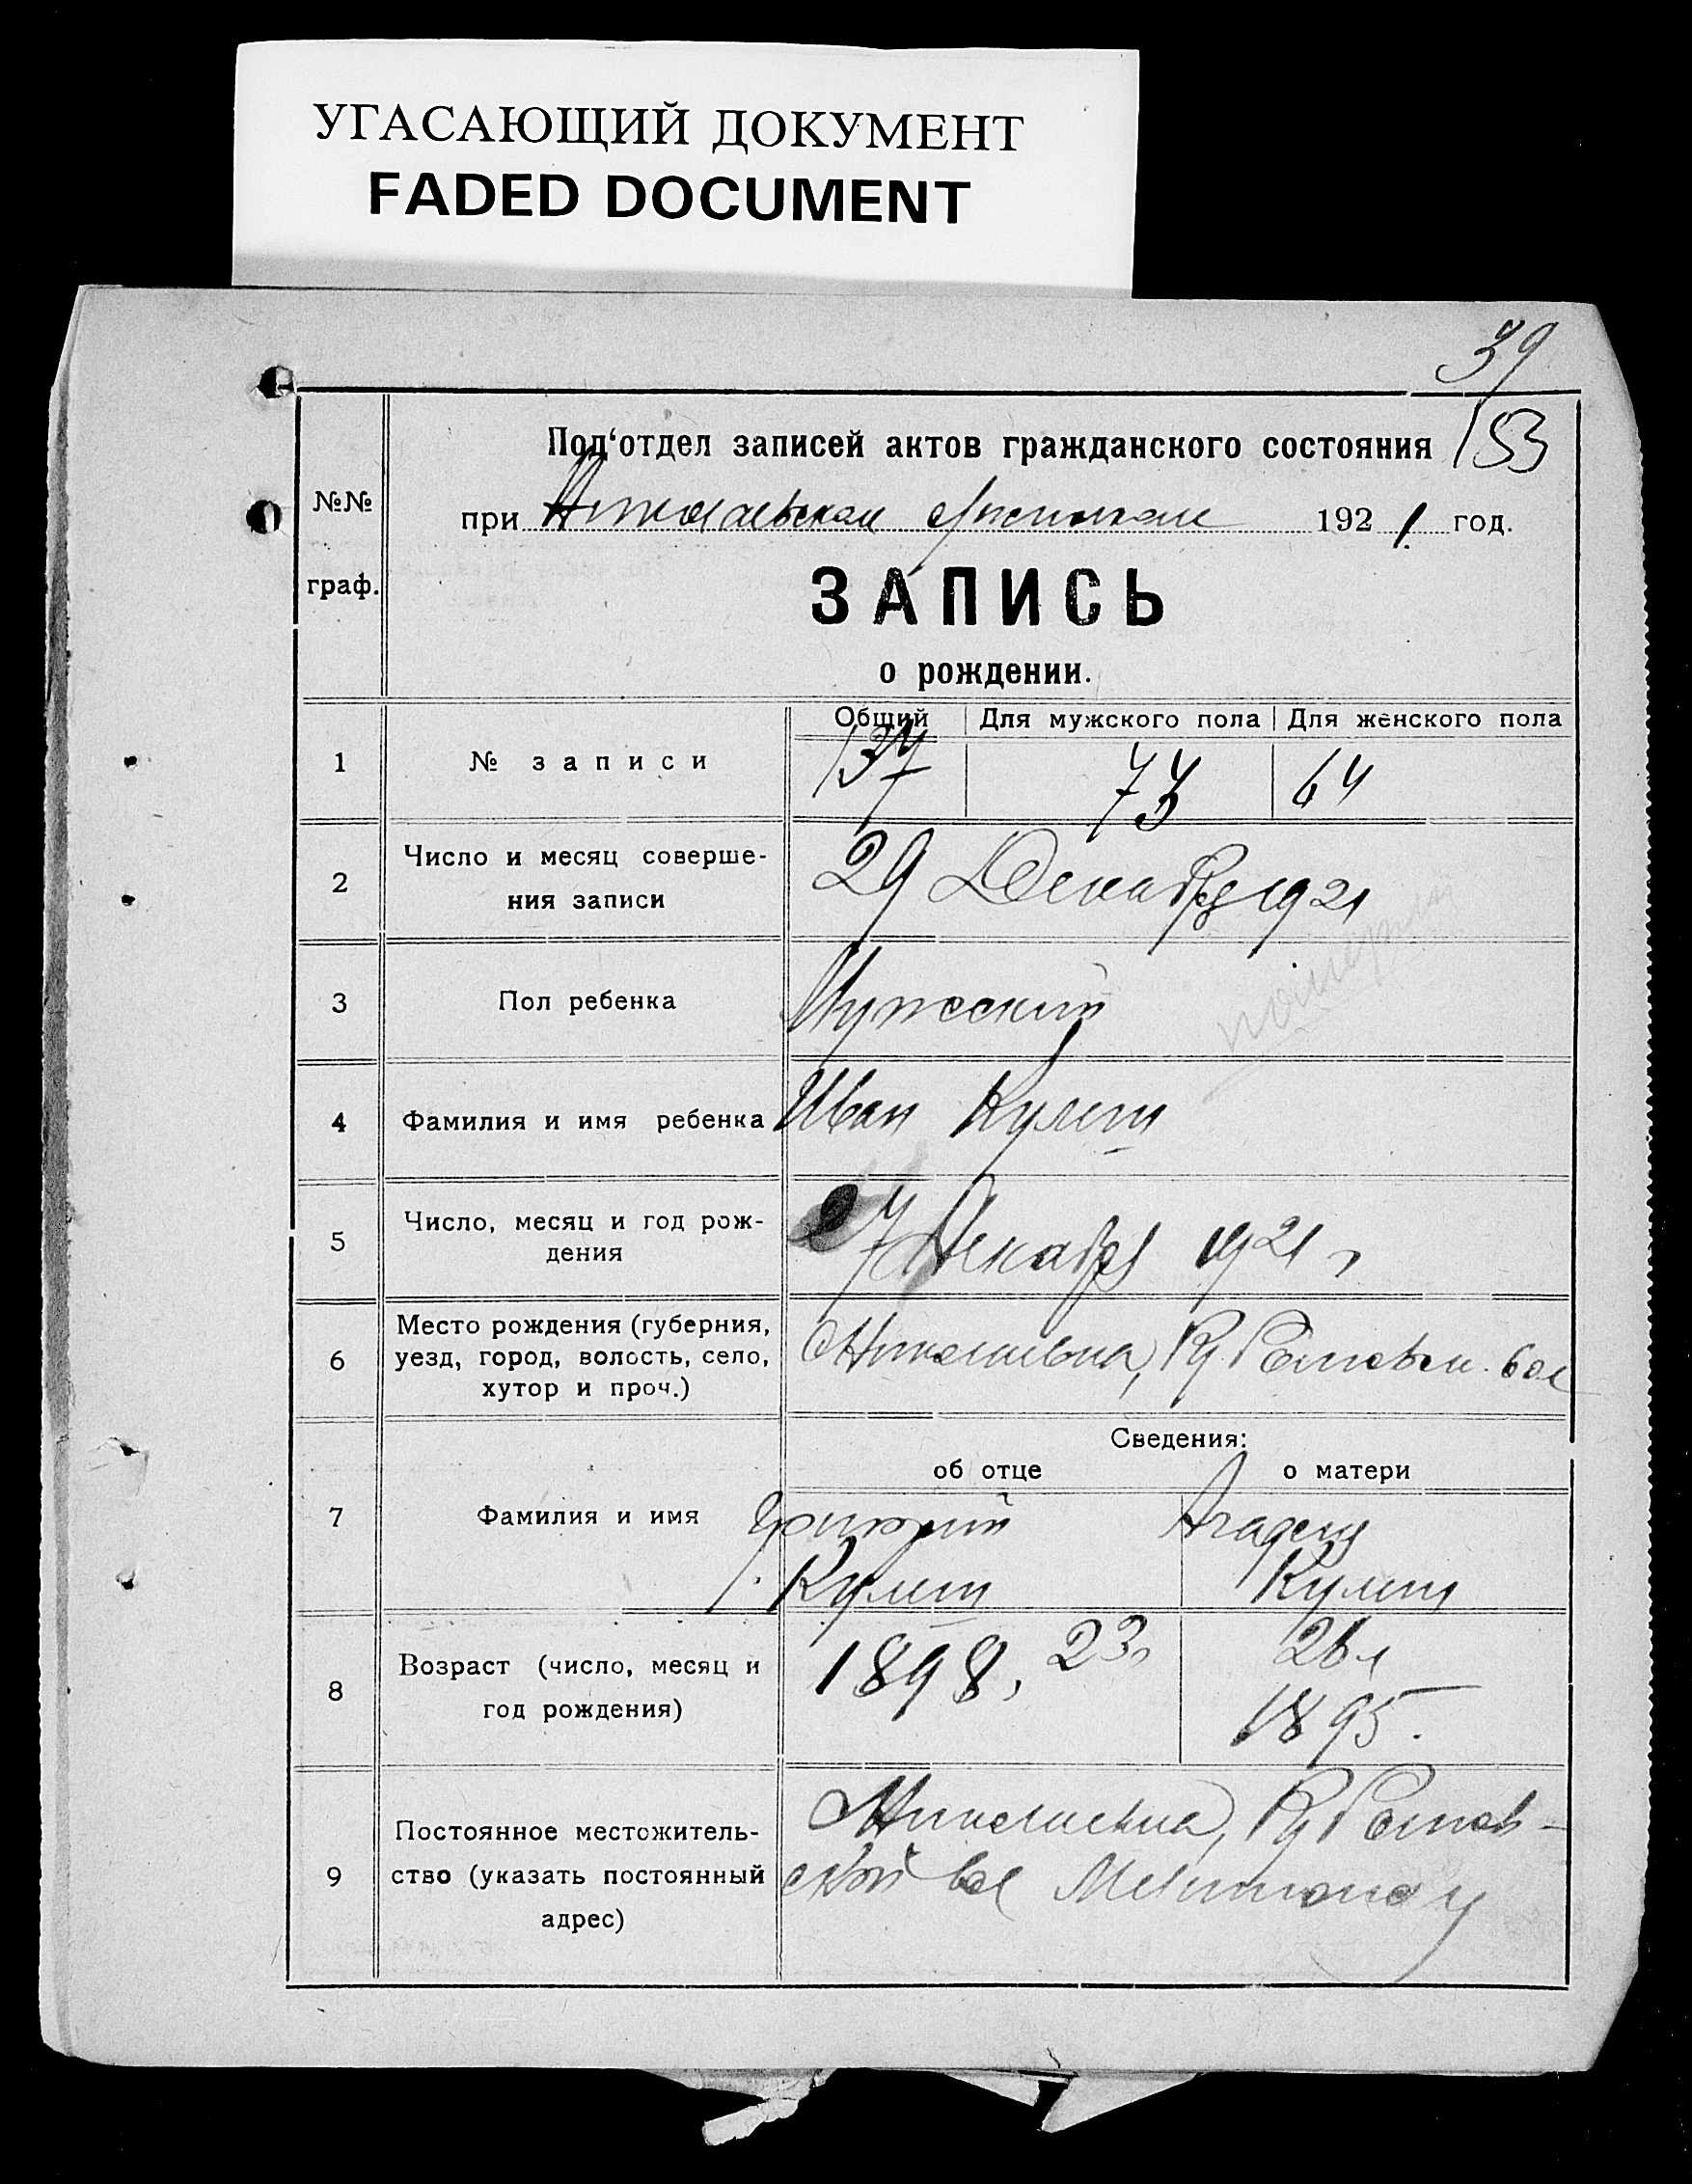 УГАСАЮЩИЙ ДОКУМЕНТ
FADED DOCUMENT
39
153
Под‘отдел записей актов гражданского состояния
№№
граф.
при 1921 год.
ЗАПИСЬ
о рождении.
Общий Для мужского пола Для женского пола
1 № записи 137 73 64
2 Число и месяц соверше-
ния записи
29 Декабря 1921
3 Пол ребенка Мужской
4 Фамилия и имя ребенка Иван Кулиш
5 Число, месяц и год рож-
дения
7 Декабря 1921 г
6 Место рождения (губерния,
уезд, город, волость, село,
хутор и проч.)
Сведения:
об отце о матери
7 Фамилия и имя Григорий
Кулиш Кулиш
8 Возраст (число, месяц и
год рождения)
1898, 23 26 л
1895.
9 Постоянное местожитель-
ство (указать постоянный
адрес)
ской вол